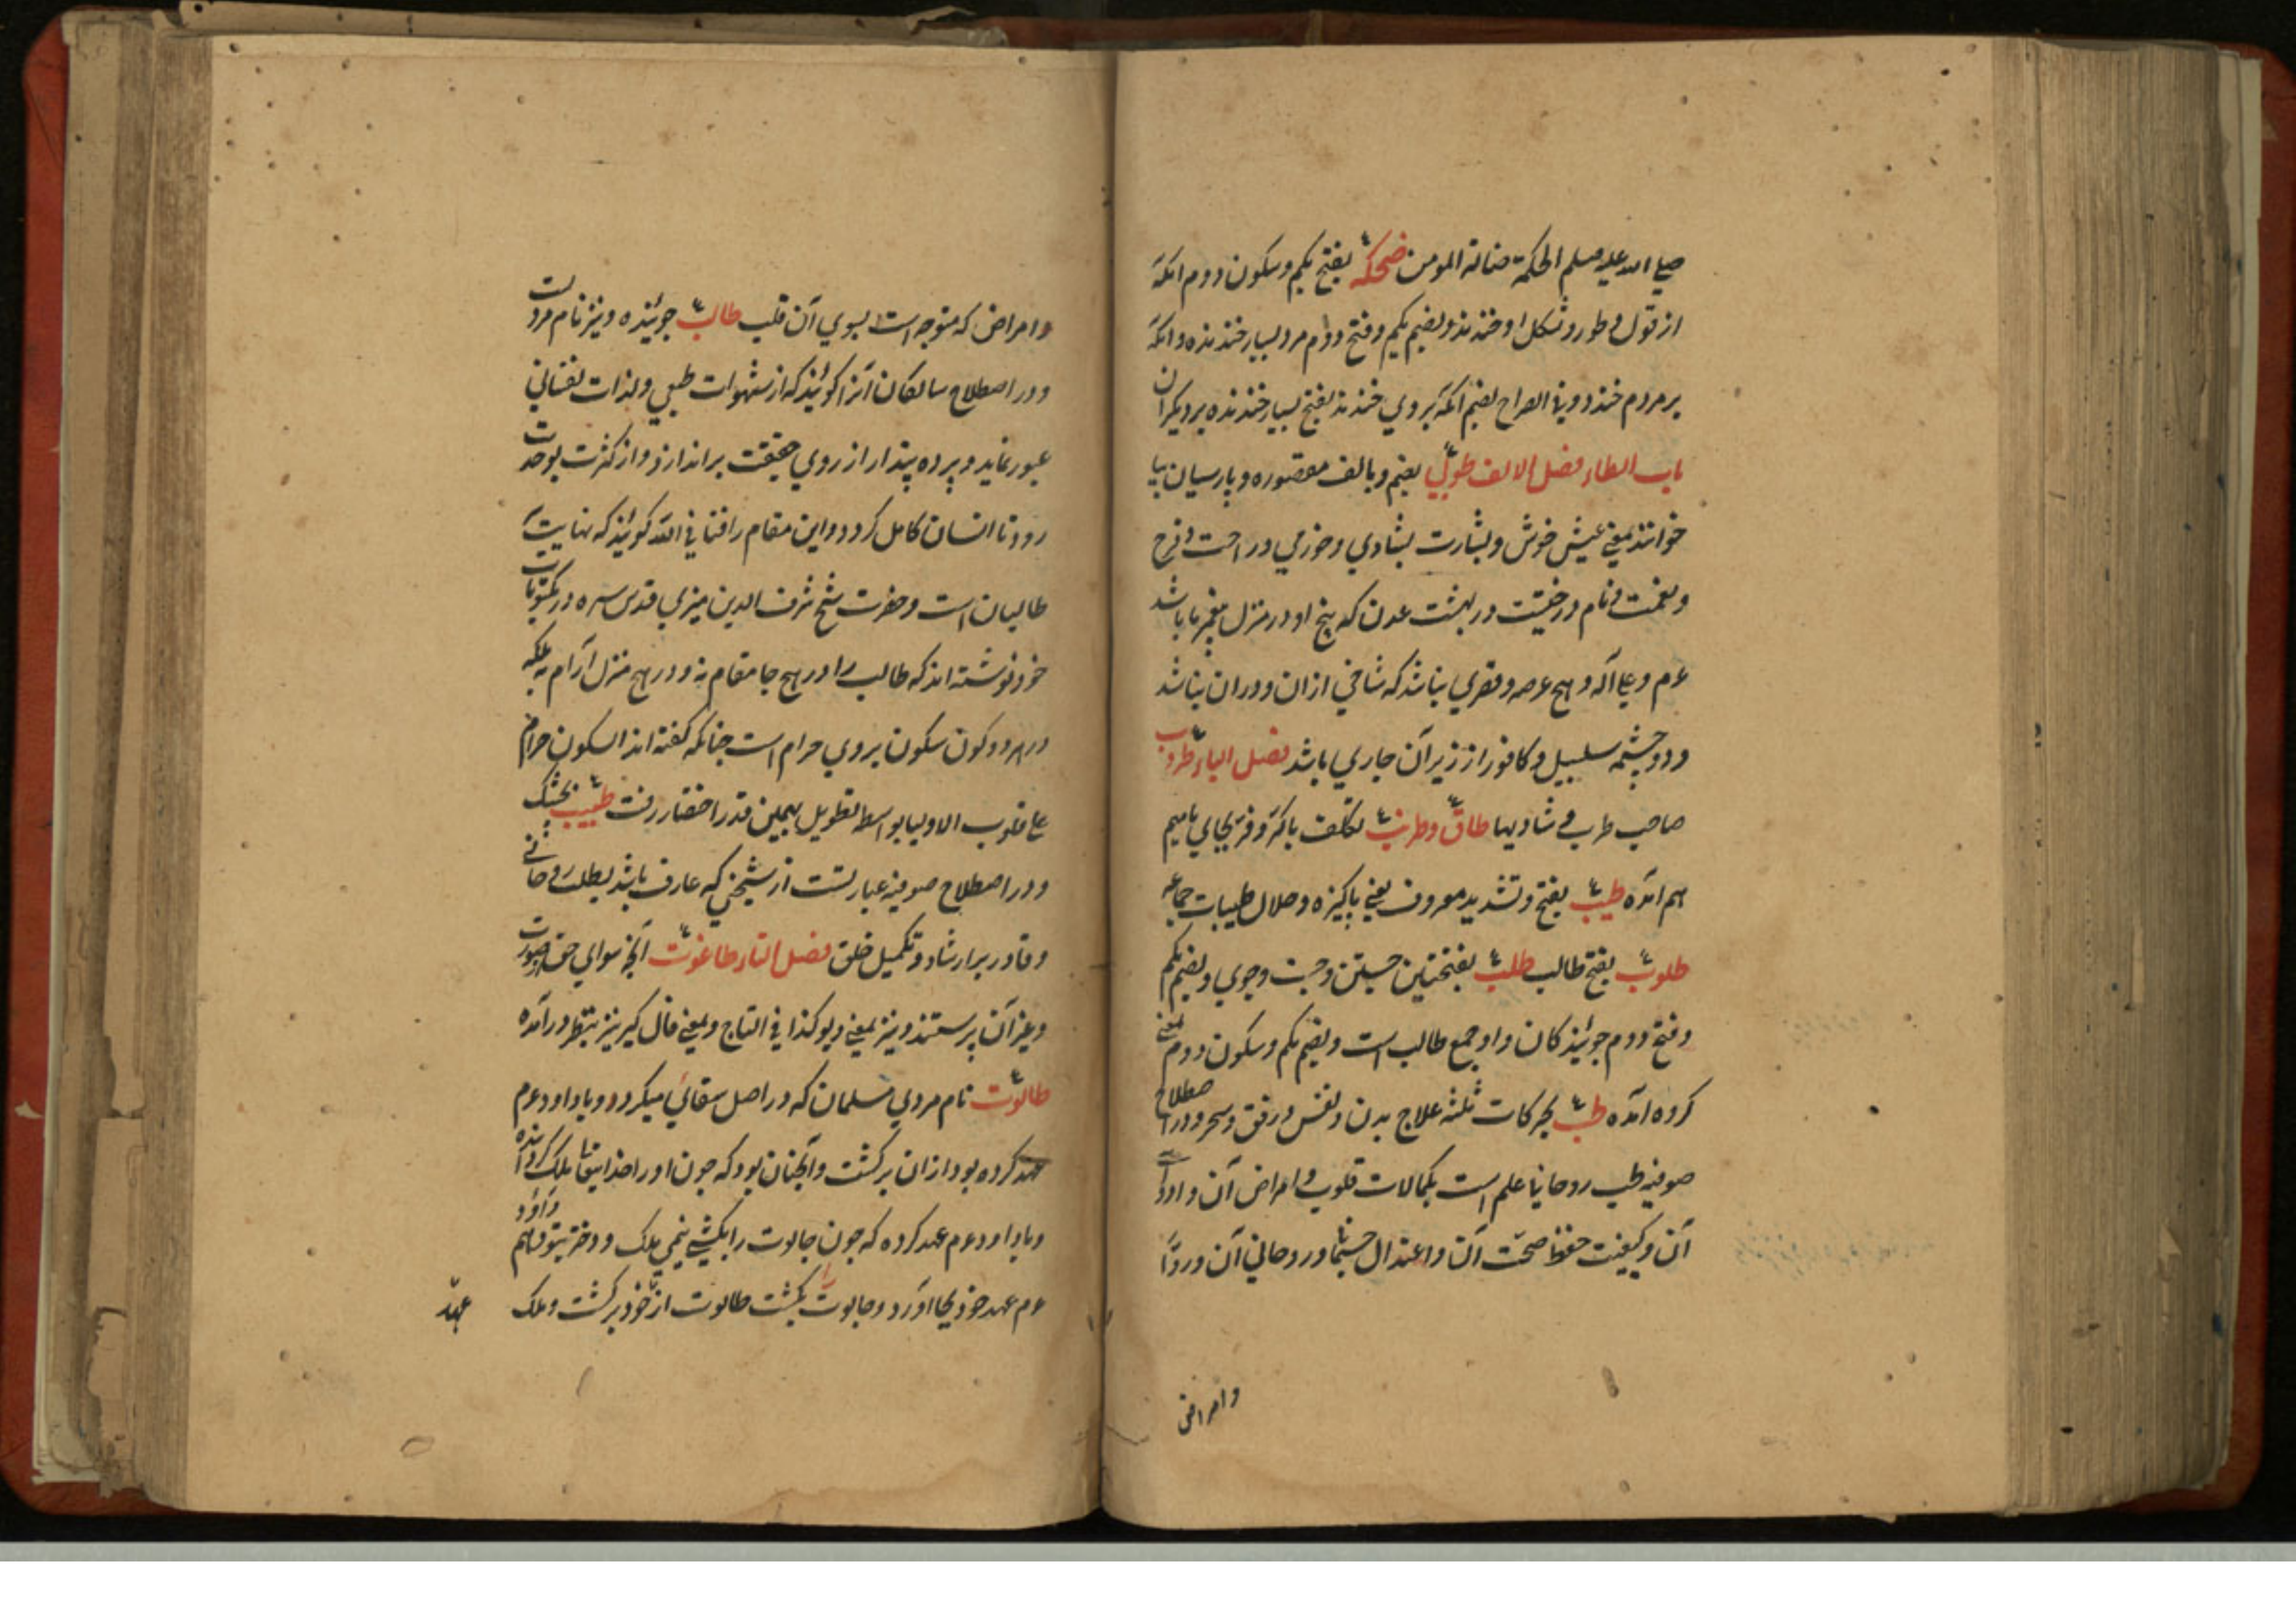 صلی الله علیه وسلم الحکمة ضالة المومن ضحکه بفتح یکم وسکون دوم انکه
از قول و طور و شکل او خندند و بضم یکم و فتح دوم مرد بسیار خندنده و انکه
بر مردم خندد و فی الصراح بضم انکه بروی خندند بفتح بسیار خندنده بر دیکران
باب الطاء فصل الالف طوبی بضم و بالف مقصوره و پارسیان بیا
خوانند بمعنی عیش خوش و بشارت بشادی و خرمی و راحت و فرح
و نعمت و نام درختیست در بهشت عدن که بیخ او در منزل پیغمبر ما باشد
عم و علی آله و هیچ عرصه و قصری نباشد که شاخی ازان دران نباشد
و دو چشمه سلسبیل و کافور از زیر آن جاری باشد فصل الباء طروب
صاحب طرب و شادیها طاق و طرنب تکلف باکر و فر بجای با میم
هم امده طیب بفتح و تشدید معروف یعنی پاکیزه و حلال طیبات جماعه
طلوب بفتح طالب طلب بفتحتین جستن و جست و جوی و بضم یکم
و فتح دوم جویندکان و او جمع طالب است و بضم یکم و سکون دوم بمعنی
کروه امده طب بحرکات ثلثه علاج بدن و نفس و رفق و سحر و در اصطلاح
صوفیه طب روحانیا علم است بکمالات قلوب و امراض آن و ادویه
آن و کیفیت حفظ صحت آن و اعتدال جسمانی و روحانی آن و رد
وامراض
وامراض که متوجه است بسوی آن قلب طالب جوینده و نیز نام مردیست
و در اصطلاح سالکان آنرا کویند که از شهوات طبعی و لذات نفسانی
عبور نماید و پرده پندار از روی حقیقت براندازد و از کثرت بوحدت
رود تا انسان کامل کردد و این مقام را فنا فی الله کویند که نهایت
طالبان است و حضرت شیخ شرف الدین منیری قدس سره در مکتوبات
خود نوشته اند که طالب را در هیچ جا مقام نه و در هیچ منزل آرام نه بلکه
در هر دو کون سکون بروی حرام است چنانکه کفته اند السکون حرام
علی قلوب الاولیا بواسطه تطویل بهمین قدر اختصار رفت طبیب بجشک
و در اصطلاح صوفیه عبارتست از شیخی که عارف باشد بطب روحانی
و قادر بر ارشاد و تکمیل خلق فصل التاء طاغوت آنچه سوای حق از صورت
و غیر آن پرستند و نیز بمعنی دیو کذا فی التاج و بمعنی فال کیر نیز بنظر درآمده
طالوت نام مردی مسلمان که در اصل سقائی میکرد و با داود عم
عهد کرده بود ازان برکشت و آنچنان بود که چون او را خدایتعالی ملک کردانیده
و با داود عم عهد کرده که چون جالوت را بکشی نیمی ملک و دختر بتو دهم داود
عم عهد خود بجا آورد و جالوت را بکشت طالوت از عهد خود برکشت و ملک